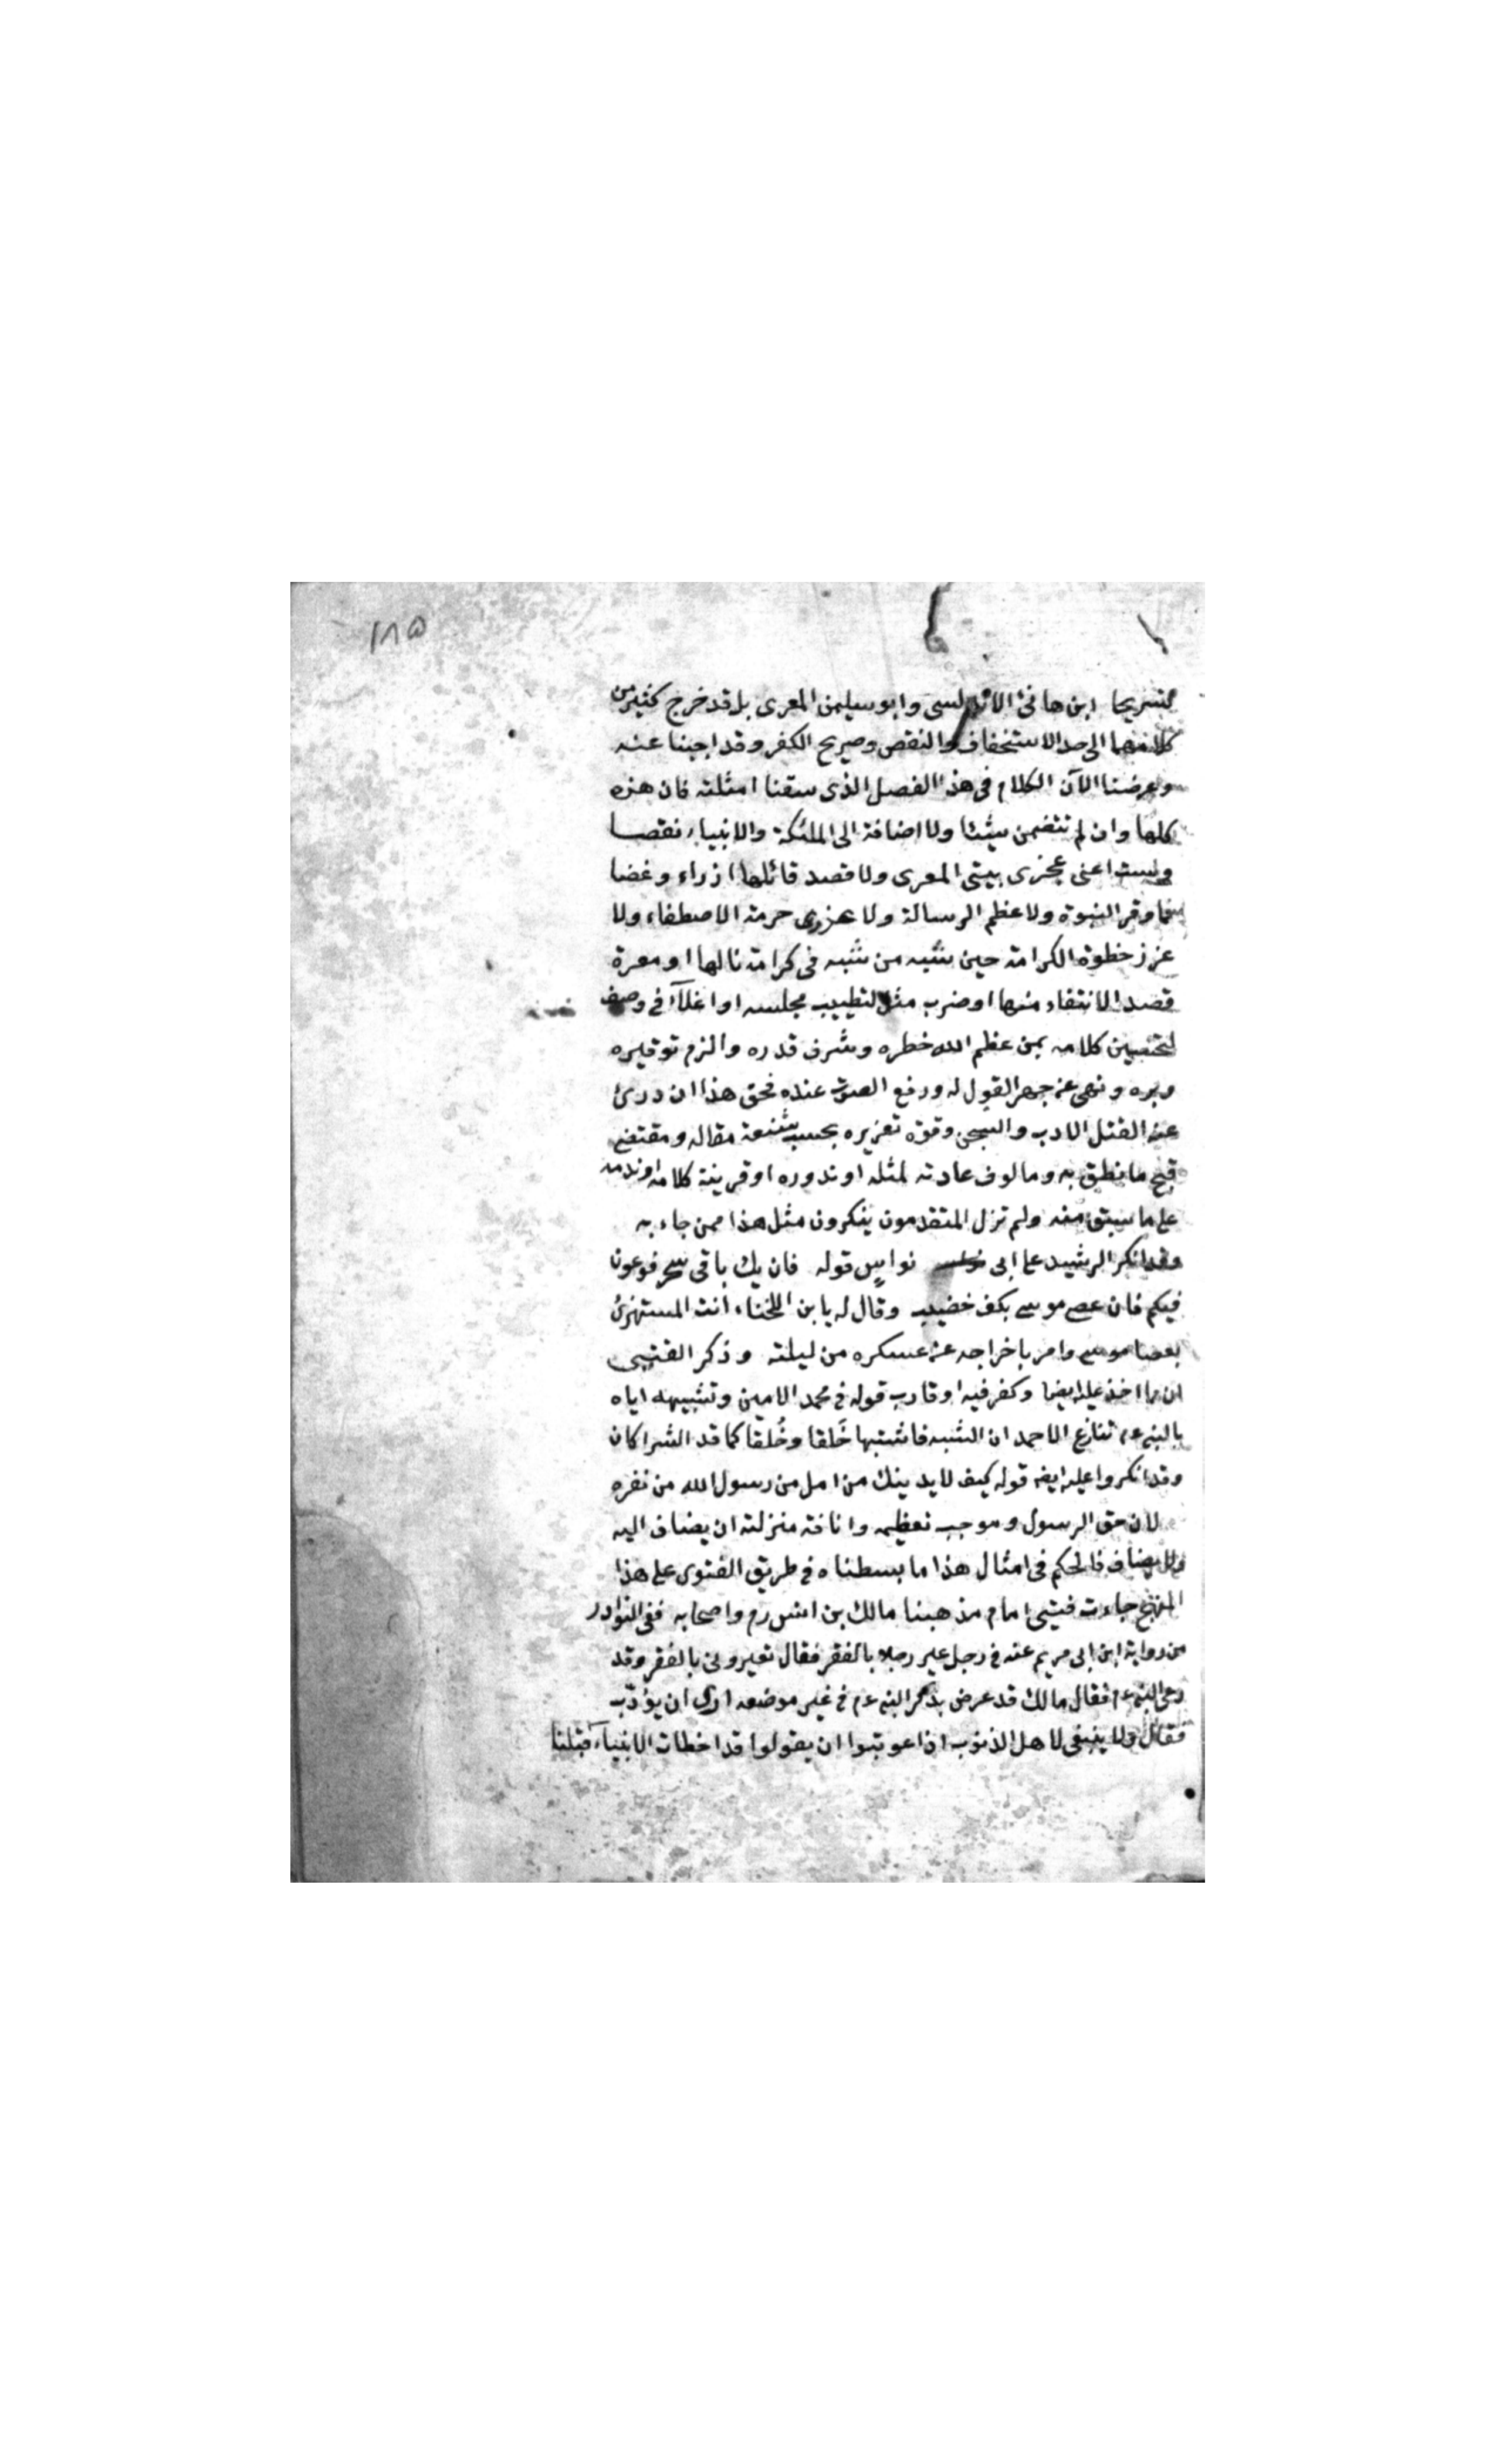 ١٨٥
تسريحا ابن هانئ الاندلسى وابو سليمن المعرى بل قد خرج كثير من
كلامهما الى حد الاستخفاف والنقص وصريح الكفر وقد اجبنا عنه
وغرضنا الآن الكلام فى هذا الفصل الذى سقنا امثلته فان هذه
كلها وان لم تتضمن سبئا ولا اضافة الى الملئكة والانبياء نقصا
ولست اعنى عجزى بيتى المعرى ولا قصد قائلها ازراء وغضا
فما وقر النبوة ولا عظم الرسالة ولا عزرى حرمة الاصطفاء ولا
عزز خطوة الكرامة حين شبه من شبه فى كرامة نالها او معرة
قصد الانتفاء منها او ضرب مثل لتطييب مجلسه او اغلآء فى وصف
لتحسين كلامه بمن عظم الله خطره وشرف قدره والزم توقيره
وبره ونهى عن جهر القول له ورفع الصوت عنده فحق هذا ان درئ
عنه القتل الادب والسجن وقوة تعزيره بحسب شنعة مقاله ومقتضى
قبح ما نطق به ومالوف عادته لمثله او ندوره او قرينة كلامه او ندمه
على ما سبق منه ولم تزل المتقدمون ينكرون مثل هذا ممن جاء به
وقد انكر الرشيد على ابى نواس قوله فان يك باقى سحر فوعون
فيكم فان عصى موسى بكف خضيب وقال له يا بن اللخناء انت المستهزئ
بعصا موسى وامر باخراجه عن عسكره من ليلته وذكر القتيبى
ان مما اخذ عليه ايضا وكفر فيه او قارب قوله فى محمد الامين وتشبيهه اياه
بالنبى ءم تنازع الاحمدان الشبه فاشتبها خَلقا وخُلقا كما قد الشراكان
وقد انكروا عليه ايضه قوله كيف لا يدينك من امل من رسول الله من نفره
لان حق الرسول وموجب تعظيمه وانافة منزلته ان يضاف اليه
ولا يضاف فالحكم فى امثال هذا ما بسطناه فى طريق الفتوى على هذا
المنهج جاءت فيتى امام مذهبنا مالك بن انس رم واصحابه ففى النوادر
من رواية ابن ابى مريم عنه فى رجل عير رجلا بالفقر فقال تعيرونى بالفقر وقد
رعى النبى ءم فقال مالك قد عرض بذكر النبى ءم فى غير موضعه ارى ان يؤدّب
فقال ولا ينبغى لاهل الذنوب اذا عوتبوا ان يقولوا قد اخطات الانبيآء قبلنا